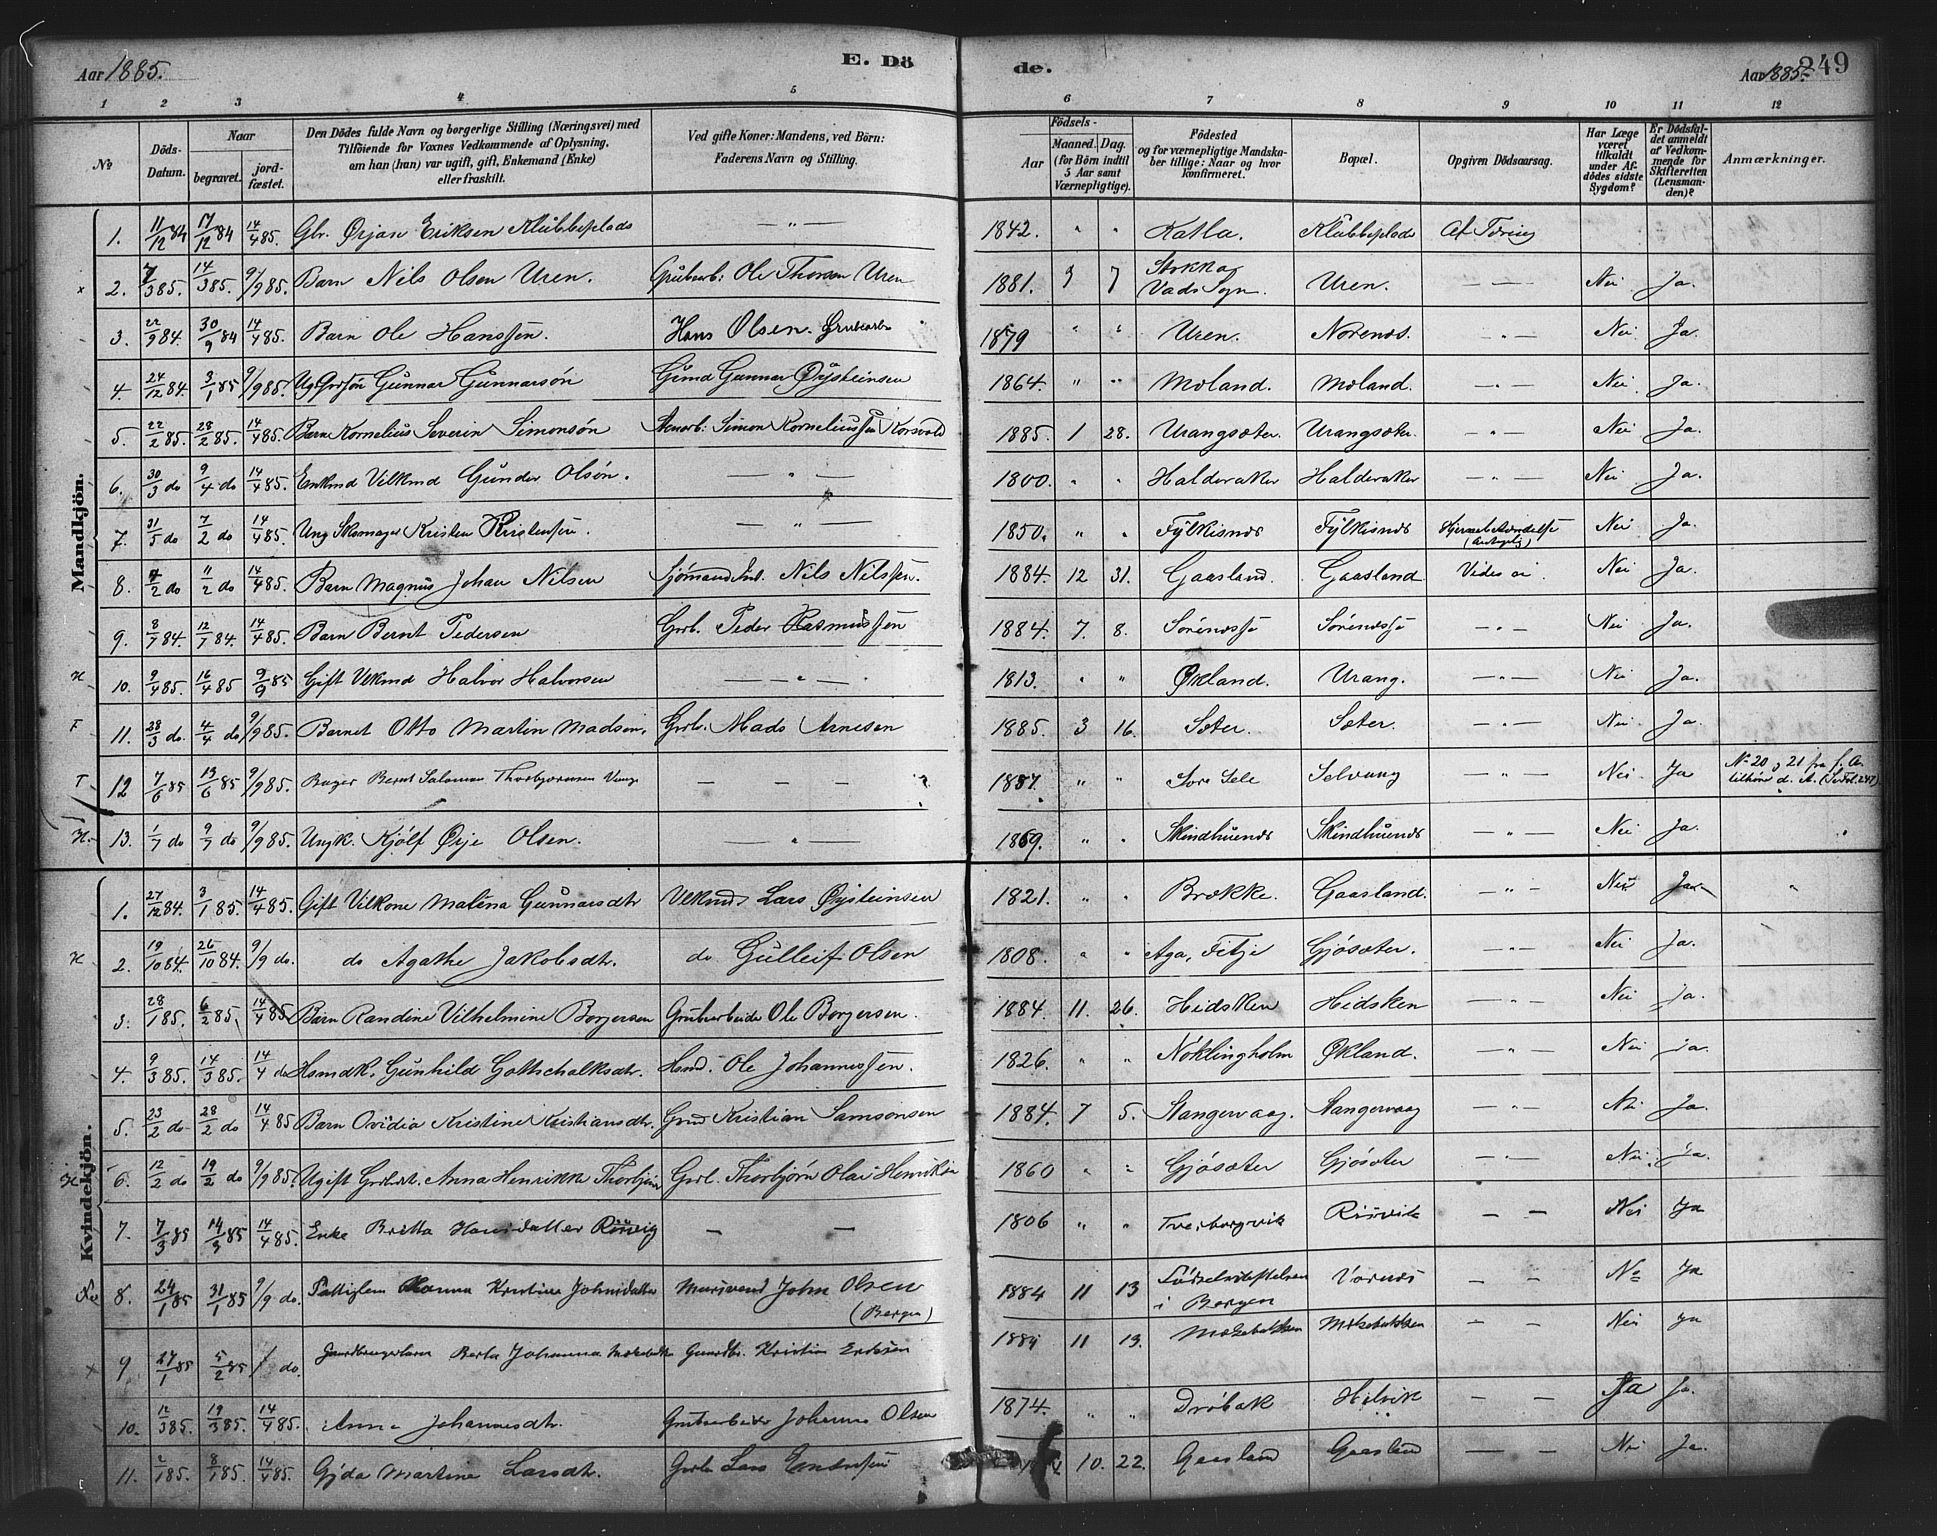 Aar 1885.
E. Dö
de.
Aar 1885.
249
1 2 3 4 5 6 7 8 9 10 11 12
No
Döds-Datum.
Naar
begravet.
jord-fæstet.
Den Dödes fulde Navn og borgerlige Stilling (Næringsvei) med
Tilföiende for Voxnes Vedkommende af Oplysning,
om han (hun) var ugift, gift, Enkemand (Enke)
eller fraskilt.
Ved gifte Koner: Mandens, ved Börn:
Faderens Navn og Stilling.
Födsels-
Aar
Maaned. Dag.
(for Börn indtil
5 Aar samt
Værnepligtige).
Födested
og for værnepligtige Mandska-
ber tillige: Naar og hvor
konfirmeret.
Bopæl.
Opgiven Dödsaarsag.
Har Læge
været
tilkaldt
under Af-
dödes sidste
Sygdom?
Er Dödsfal-
det anmeldt
af Vedkom-
mende for
Skifteretten
(Lensman-
den)?
Anmærkninger.
Mandkjön.
1. 11/12 84 17/12 84 14/4 85. Gbr. Ørjan Eriksen Klubbeplads — " — 1842. " " Katla. Klubbeplads Af Tæring
x 2. 7/3 85. 14/3 85. 9/9 85. Barn Nils Olsen Uren. Grubearb: Ole Thorsen Uren 1881. 9 7 Stokka Vads Sogn. Uren. — " — Nei Ja.
3. 22/9 84. 30/9 84 14/4 85. Barn Ole Hanssen. Hans Olsen. Grubearb. 1879 " " Uren. Norenes. — " — Nei Ja.
4. 24/12 84. 3/1 85 9/9 85. Ug. Grdsøn Gunnar Gunnarsøn Gmd Gunnar Øysteinsen 1864. " " Moland. Moland. — " — Nei Ja.
5. 22/2 85. 28/2 85. 14/4 85. Barn Kornelius Severin Simonsøn Stenarb: Simon Korneliussen Korsvold 1885. 1 28. Urangsæter. Urangsæter. — " — Nei Ja.
6. 30/3 do 9/4 do 14/4 85. Enkmd Vilkmd Gunder Olsøn. — " — 1800. " " Halderaker Halderaker — " — Nei Ja.
7. 31/5 do 7/2 do 14/4 85. Ung Skomager Kristen Kristensen. — " — 1850. " " Fylkisnes Fylkisnes Hjernebetændelse Nei Ja.
8. 4/2 do 11/2 do 14/4 85. Barn Magnus Johan Nilsen Sjømand Nils Nilssen. 1884. 12 31. Gaasland. Gaasland Vides ei. Nei Ja.
9. 8/7 84. 12/7 84. 14/4 85. Barn Bernt Pedersen Grb. Peder Rasmussen 1884. 7. 8. — " — Nei Ja.
H 10. 9/4 85. 16/4 85 9/9 85 Gift Vilkmd Halvor Halvorsen — " — 1813. " " Økland. Urang. — " — Nei Ja.
F 11. 28/3 do. 4/4 do 9/9 85. Barnet Otto Martin Madsen, Grb. Mads Arnesen 1885. 3 16. Sæter. Sæter. — " — Nei. Ja.
T 12 7/6 85 13/6 85 9/9 85. Bager Bernt Salomon Thorbjornsen — — 1857. " " Sore Sele Selvaag — " — Nei Ja No 20 og 21 fra f. A. tilhöre d. A. (Se fol. 247)
H. 13. 1/7 do 9/7 do 9/9 85. Ungk. Kjølf Ørje Olsen. — " — 1869. " " Skindhuenes Skindhuenes — " — Nei Ja.
Kvindekjön.
1. 27/12 84. 3/1 85. 14/4 85. Gift Vilkone Malena Gunnarsdtr Vilkmd Lars Øysteinsen 1821. " " Brække. Gaasland. — " — Nei Ja. "
H 2. 19/10 84. 26/10 84. 9/9 do. do Agathe Jakobsdtr. do Gulleif Olsen 1808. " " Aga, Fitje Gjøsæter. — " — Nei Ja.
3. 28/1 85. 6/2 85. 14/4 85 Barn Randine Vilhelmine Borgersen Grubearbeider Ole Borgersen. 1884. 11. 26. Hidsken Hidsken — " — Nei Ja.
4. 9/3 85. 14/3 85. 14/4 do Hsmdk. Gunhild Gottschalksdtr. Hsmd. Ole Johannessen. 1826. " " Nöklingholm Økland. — " — Nei Ja.
5. 23/2 do 28/2 do 14/4 85 Barn Ovidia Kristine Kristiansdtr. Gmd Kristian Samsonsen 1884. 7 5. Stangervaag. Stangervaag — " — Nei Ja.
H 6. 12/2 do 19/2 do 9/9 85. Ugift Grdbdtr. Anna Henrikke Thorbjørns Grb. Thorbjørn Olai Henriksen 1860 " " Gjösæter Gjösæter — " — Nei Ja.
7. 7/3 85 14/3 85 14/4 85. Enke Britta Hansdatter Risvig — — 1806 " " Tverborgvik Risvik — — Nei Ja
8. 24/1 85 31/1 85 9/9 do. Fattiglem Hanna Kristine Johnsdatter Mursvend John Olsen (Bergen) 1884 11 13 Födselsstiftelsen i Bergen Vornes — — Nei Ja
x 9 27/1 85 5/2 85 / do. Gaardbrugerbarn Berta Johanna Mækebakke Gaardbr. Kristian Ericsen 1884 11 19. Mækebakken Mækebakken — — Nei Ja
10. 12/3 85. 19/3 85. 14/4 85. Anna Johannesdtr. Grubearbeider Johannes Olsen 1874. " " Dröbak Hilvik — — Ja Ja.
11. 2/1 85. 8/1 85. 14/4 85. Gjda Martine Larsdtr. Grdbr Lars Endresen 10. 22. Gaasland Gaasland — — Nei Ja.